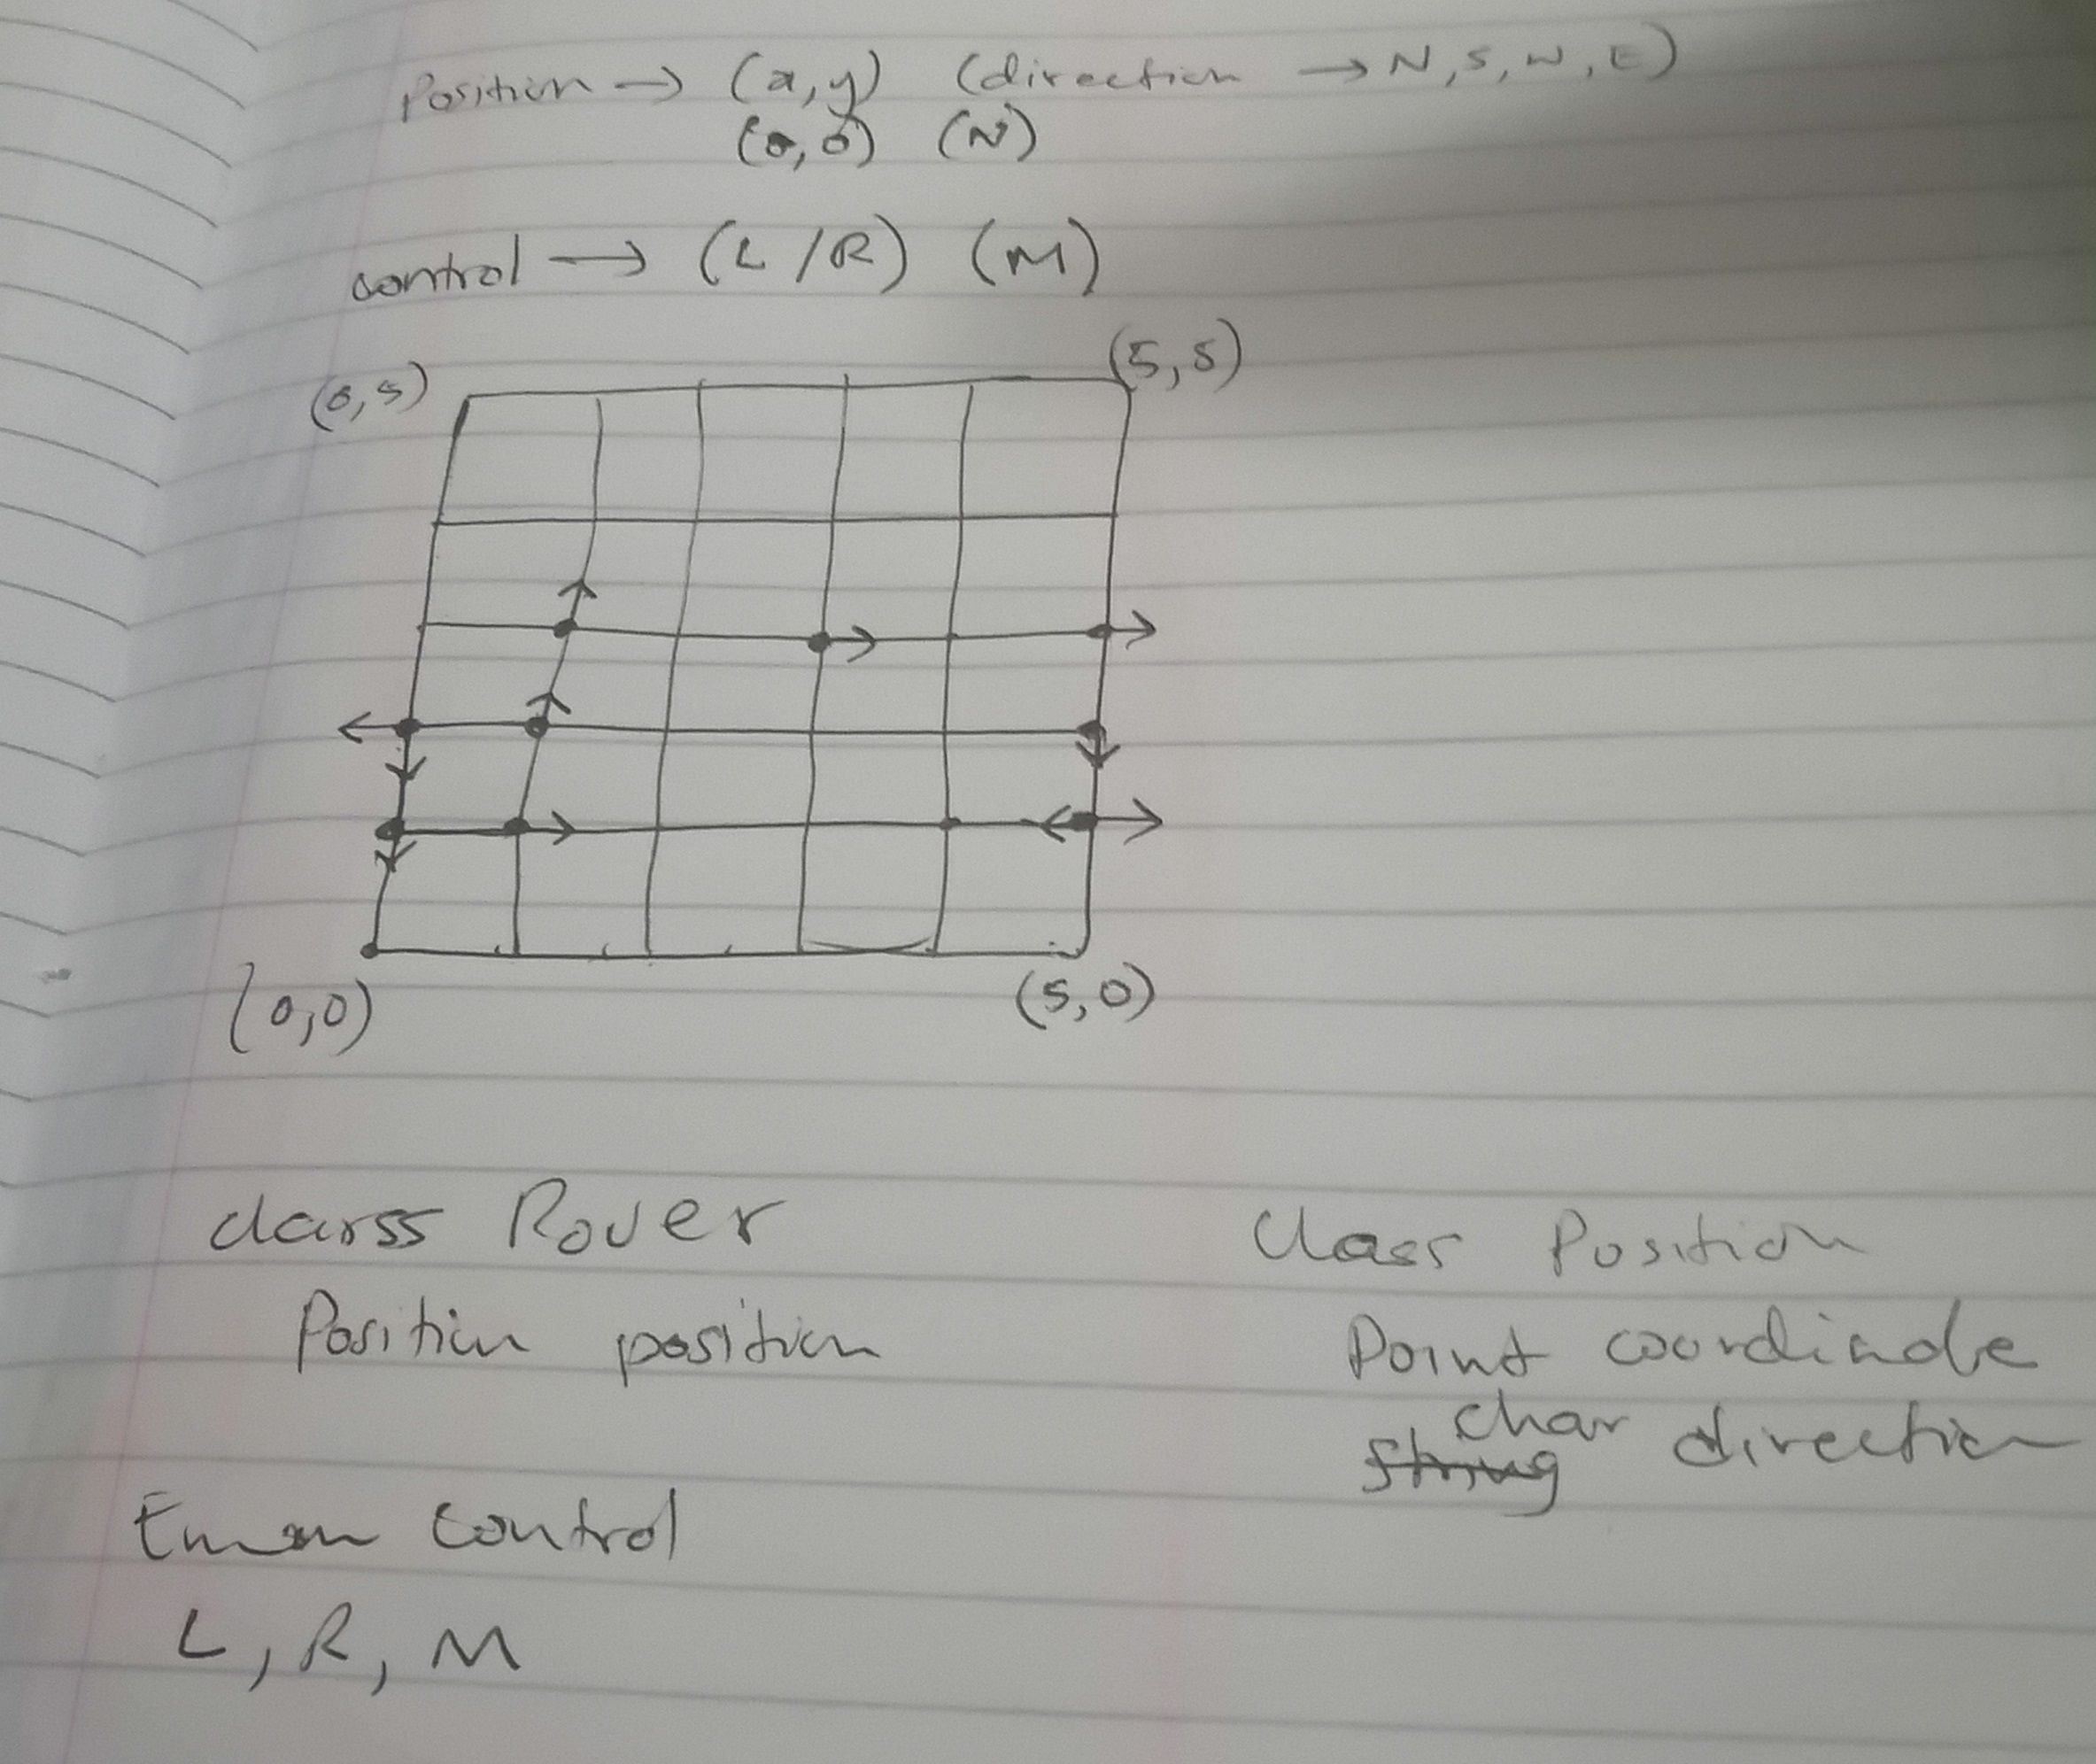 Position → (x,y) (direction → N,S,W,E)
(0,0) (N)
control → (L/R) (M)
(0,5) (5,5)
(0,0) (5,0)
class Rover
Position position
Class Position
Point coordinate
char
string direction
Enum control
L, R, M